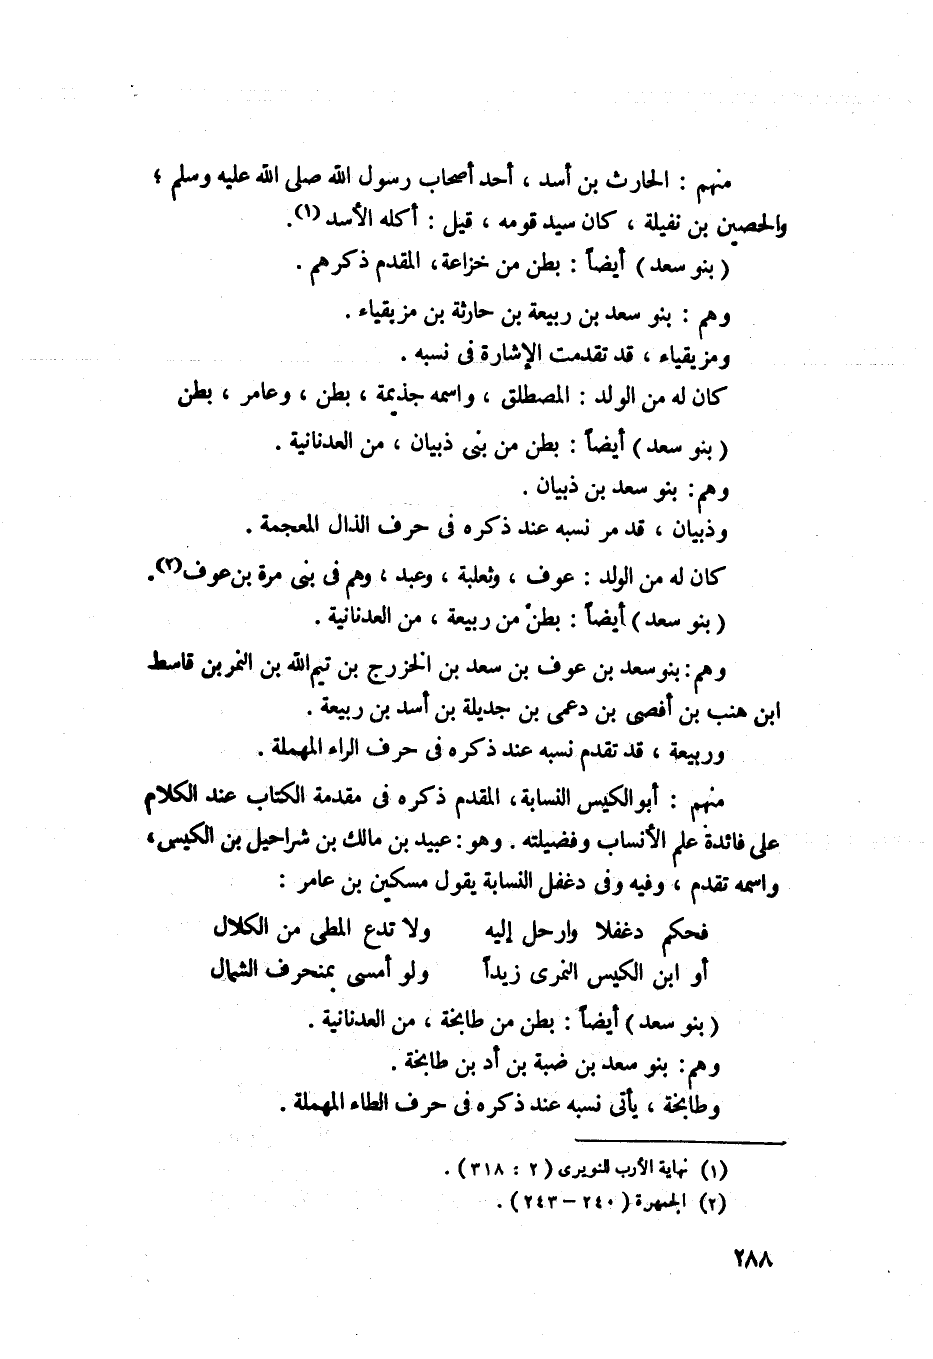 منهم : الحارث بن أسد ، أحد أصحاب رسول الله صلى الله عليه وسلم ؛
والحصين بن نفيلة ، كان سيد قومه ، قيل : أكله الأسد (١).
( بنو سعد ) أيضاً : بطن من خزاعة، المقدم ذكرهم .
وهم : بنو سعد بن ربيعة بن حارثة بن مزيقياء .
ومزيقياء ، قد تقدمت الإشارة فى نسبه .
كان له من الولد : المصطلق ، واسمه جذيمة ، بطن ، وعامر ، بطن
( بنو سعد ) أيضاً : بطن من بنى ذبيان ، من العدنانية .
وهم: بنو سعد بن ذبيان .
وذبيان ، قد مر نسبه عند ذكره فى حرف الذال المعجمة .
كان له من الولد : عوف ، وثعلبة ، وعبد ، وهم فى بنى مرة بن عوف(٢).
( بنو سعد ) أيضاً : بطنٌ من ربيعة ، من العدنانية .
وهم: بنو سعد بن عوف بن سعد بن الخزرج بن تيم الله بن النمر بن قاسط
ابن هنب بن أفصى بن دعمى بن جديلة بن أسد بن ربيعة .
وربيعة ، قد تقدم نسبه عند ذكره فى حرف الراء المهملة .
منهم : أبو الكيس النسابة، المقدم ذكره فى مقدمة الكتاب عند الكلام
على فائدة علم الأنساب وفضيلته . وهو : عبيد بن مالك بن شراحيل بن الكيس،
واسمه تقدم ، وفيه وفى دغفل النسابة يقول مسكين بن عامر :
فحكم دغفلا وارحل إليه ولا تدع المطى من الكلال
أو ابن الكيس النمرى زيداً ولو أمسى بمنحرف الشمال
( بنو سعد ) أيضاً : بطن من طابخة ، من العدنانية .
وهم: بنو سعد بن ضبة بن أد بن طابخة .
وطابخة ، يأتى نسبه عند ذكره فى حرف الطاء المهملة .
(١) نهاية الأرب للنويرى ( ٢ : ٣١٨ ) .
(٢) الجمهرة ( ٢٤٠ – ٢٤٣ ) .
٢٨٨